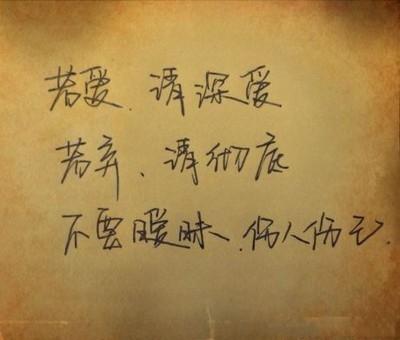 若爱、请深爱
若弃、请彻底
不要暧昧、伤人伤己.